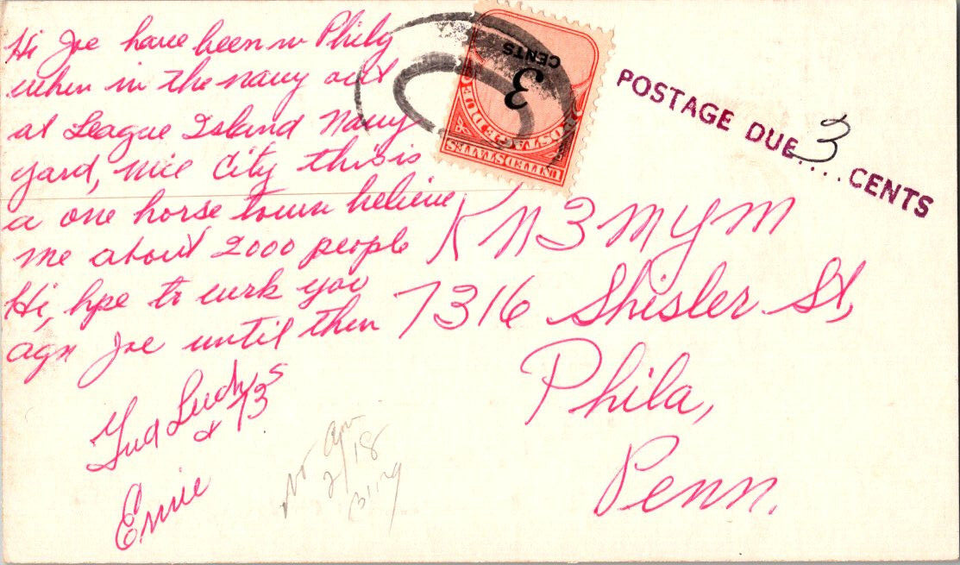 Hi Joe have been in Phily
when in the navy out
at League Island Navy
yard, nice City this is
a one horse town believe
me about 2000 people
Hi, hpe to wrk you
agn Joe until then
Gud Luck
& 73s
Ernie
3
CENTS
POSTAGE DUE
UNITED STATES
POSTAGE DUE 3.... CENTS
KN3MYM
7316 Shisler St,
Phila,
Penn.
2/18